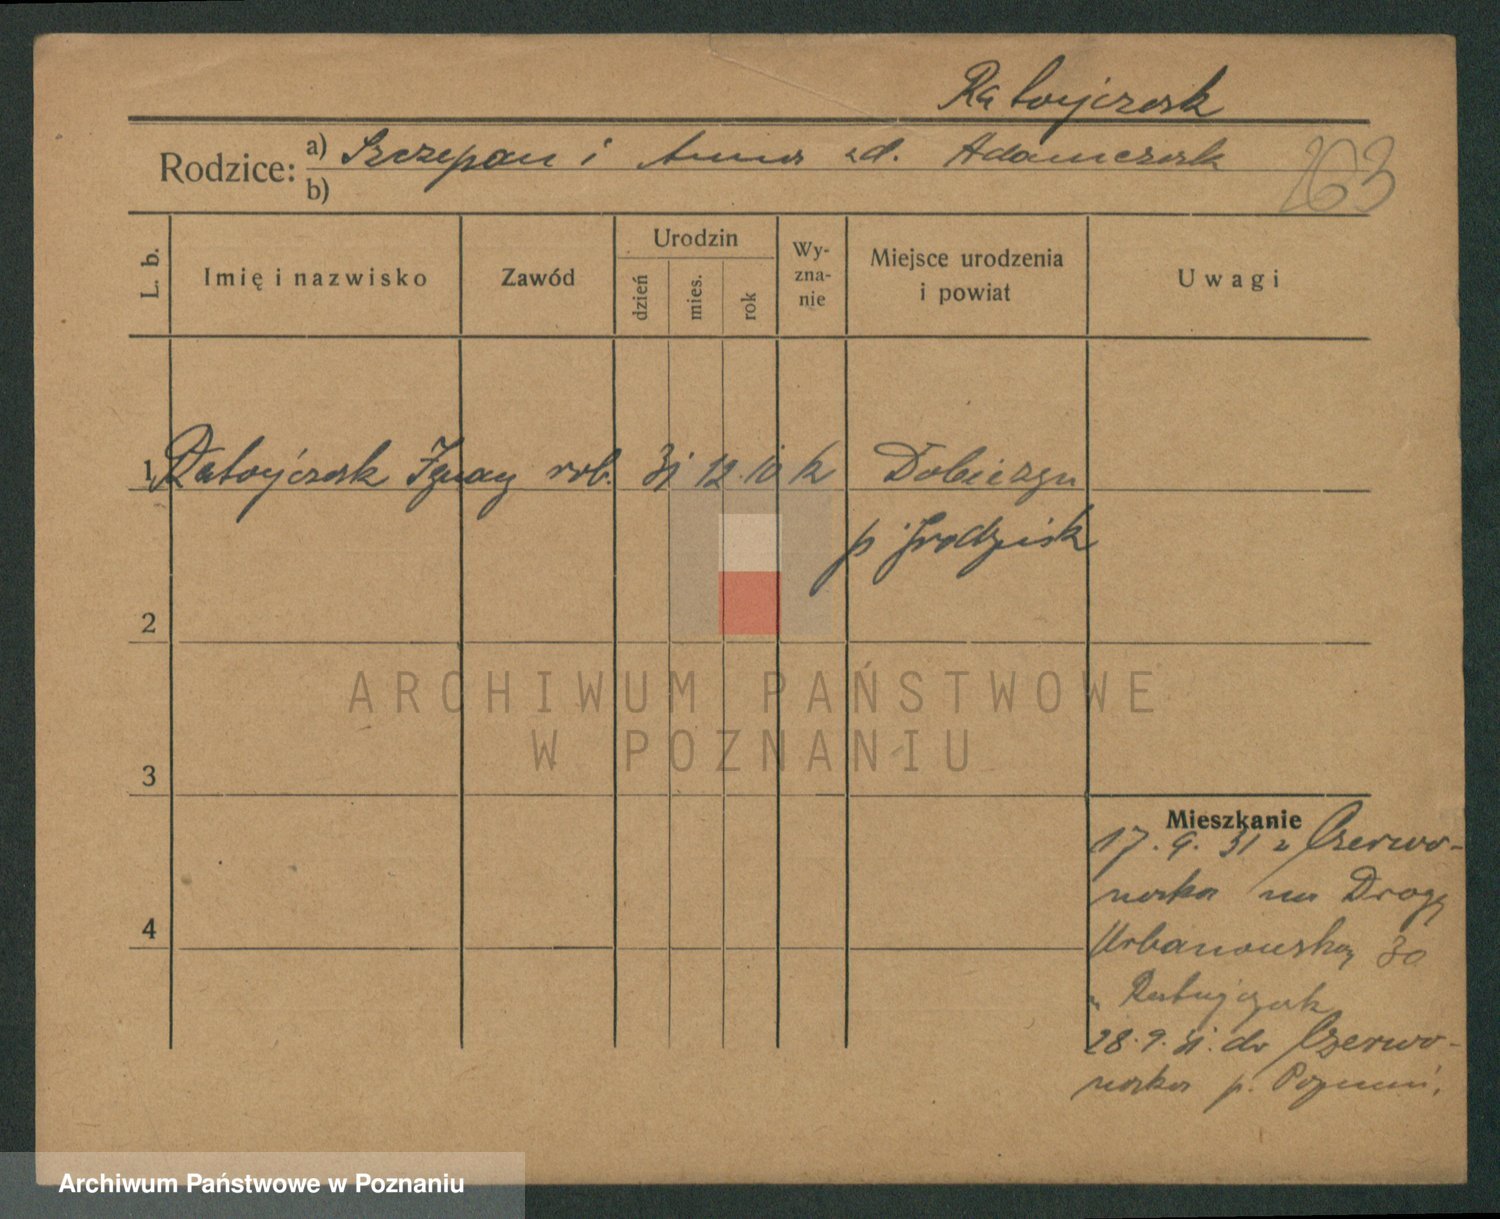 Ratajczak
Rodzice: a) Szczepan i Anna zd. Adamczak
b)
263
L. b.
Imię i nazwisko
Zawód
Urodzin
dzień
mies.
rok
Wy-
zna-
nie
Miejsce urodzenia
i powiat
Uwagi
1 Ratajczak Ignacy rob. 31 12. 10 k Dobieżyn
p. Grodzisk
2
ARCHIWUM PAŃSTWOWE
W POZNANIU
3
Mieszkanie
17. 9. 31 z Czerwo-
naka na Drogę
4
Urbanowską 30
u Ratajczak
28. 9. 31. do Czerwo-
naka p. Poznań.
Archiwum Państwowe w Poznaniu